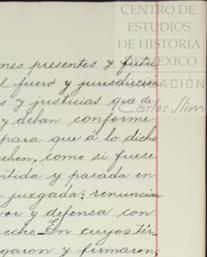 CENTRO DE
ESTUDIOS
DE HISTORIA
DE MEXICO
nes presentes y futu
l fuero y jurisdiccion
s y justicias que de
y devan conforme
para que á lo dicho
chen, como si fuese
ntida y pasada en
juzgada; renuncian
or y defensa con
echo. En cuyos tér
garon y firmaron,
FUNDACIÓN
Carlos Slim